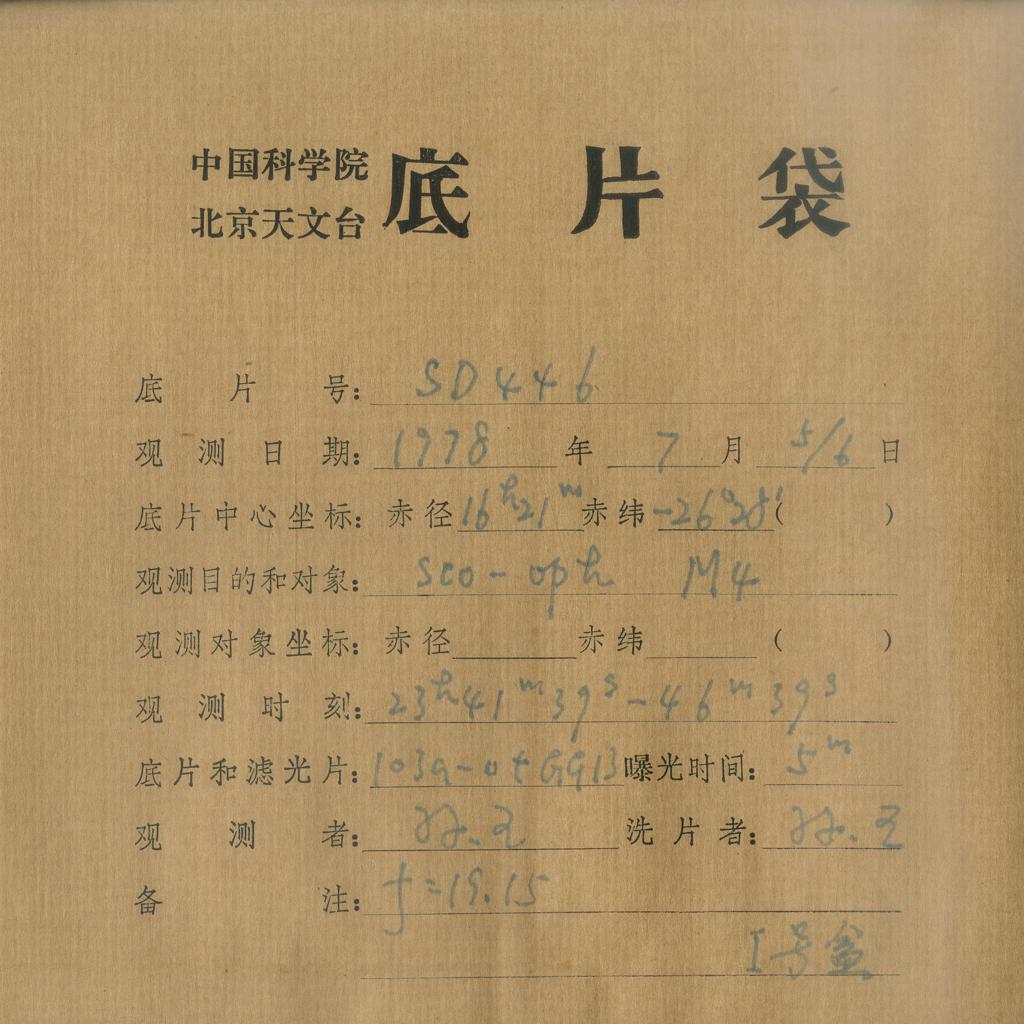 中国科学院
北京天文台
底片袋
底片号：SD446
观测日期：1978年7月5/6日
底片中心坐标：赤径16h21m赤纬-26°28′（ ）
观测目的和对象：sco-oph M4
观测对象坐标：赤径 赤纬 （ ）
观测时刻：23h41m39s-46m39s
底片和滤光片：103a-o+GG13曝光时间：5m
观测者：孙.王 洗片者：孙.王
备注：f=19.15
I号盒